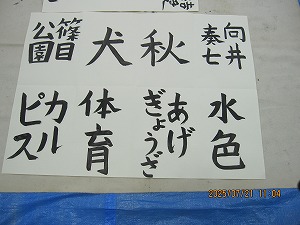 向井
奏七
秋
犬
篠目
公園
水色
あげ
ぎょうざ
体育
カル
ピス
2025/07/21 11:04